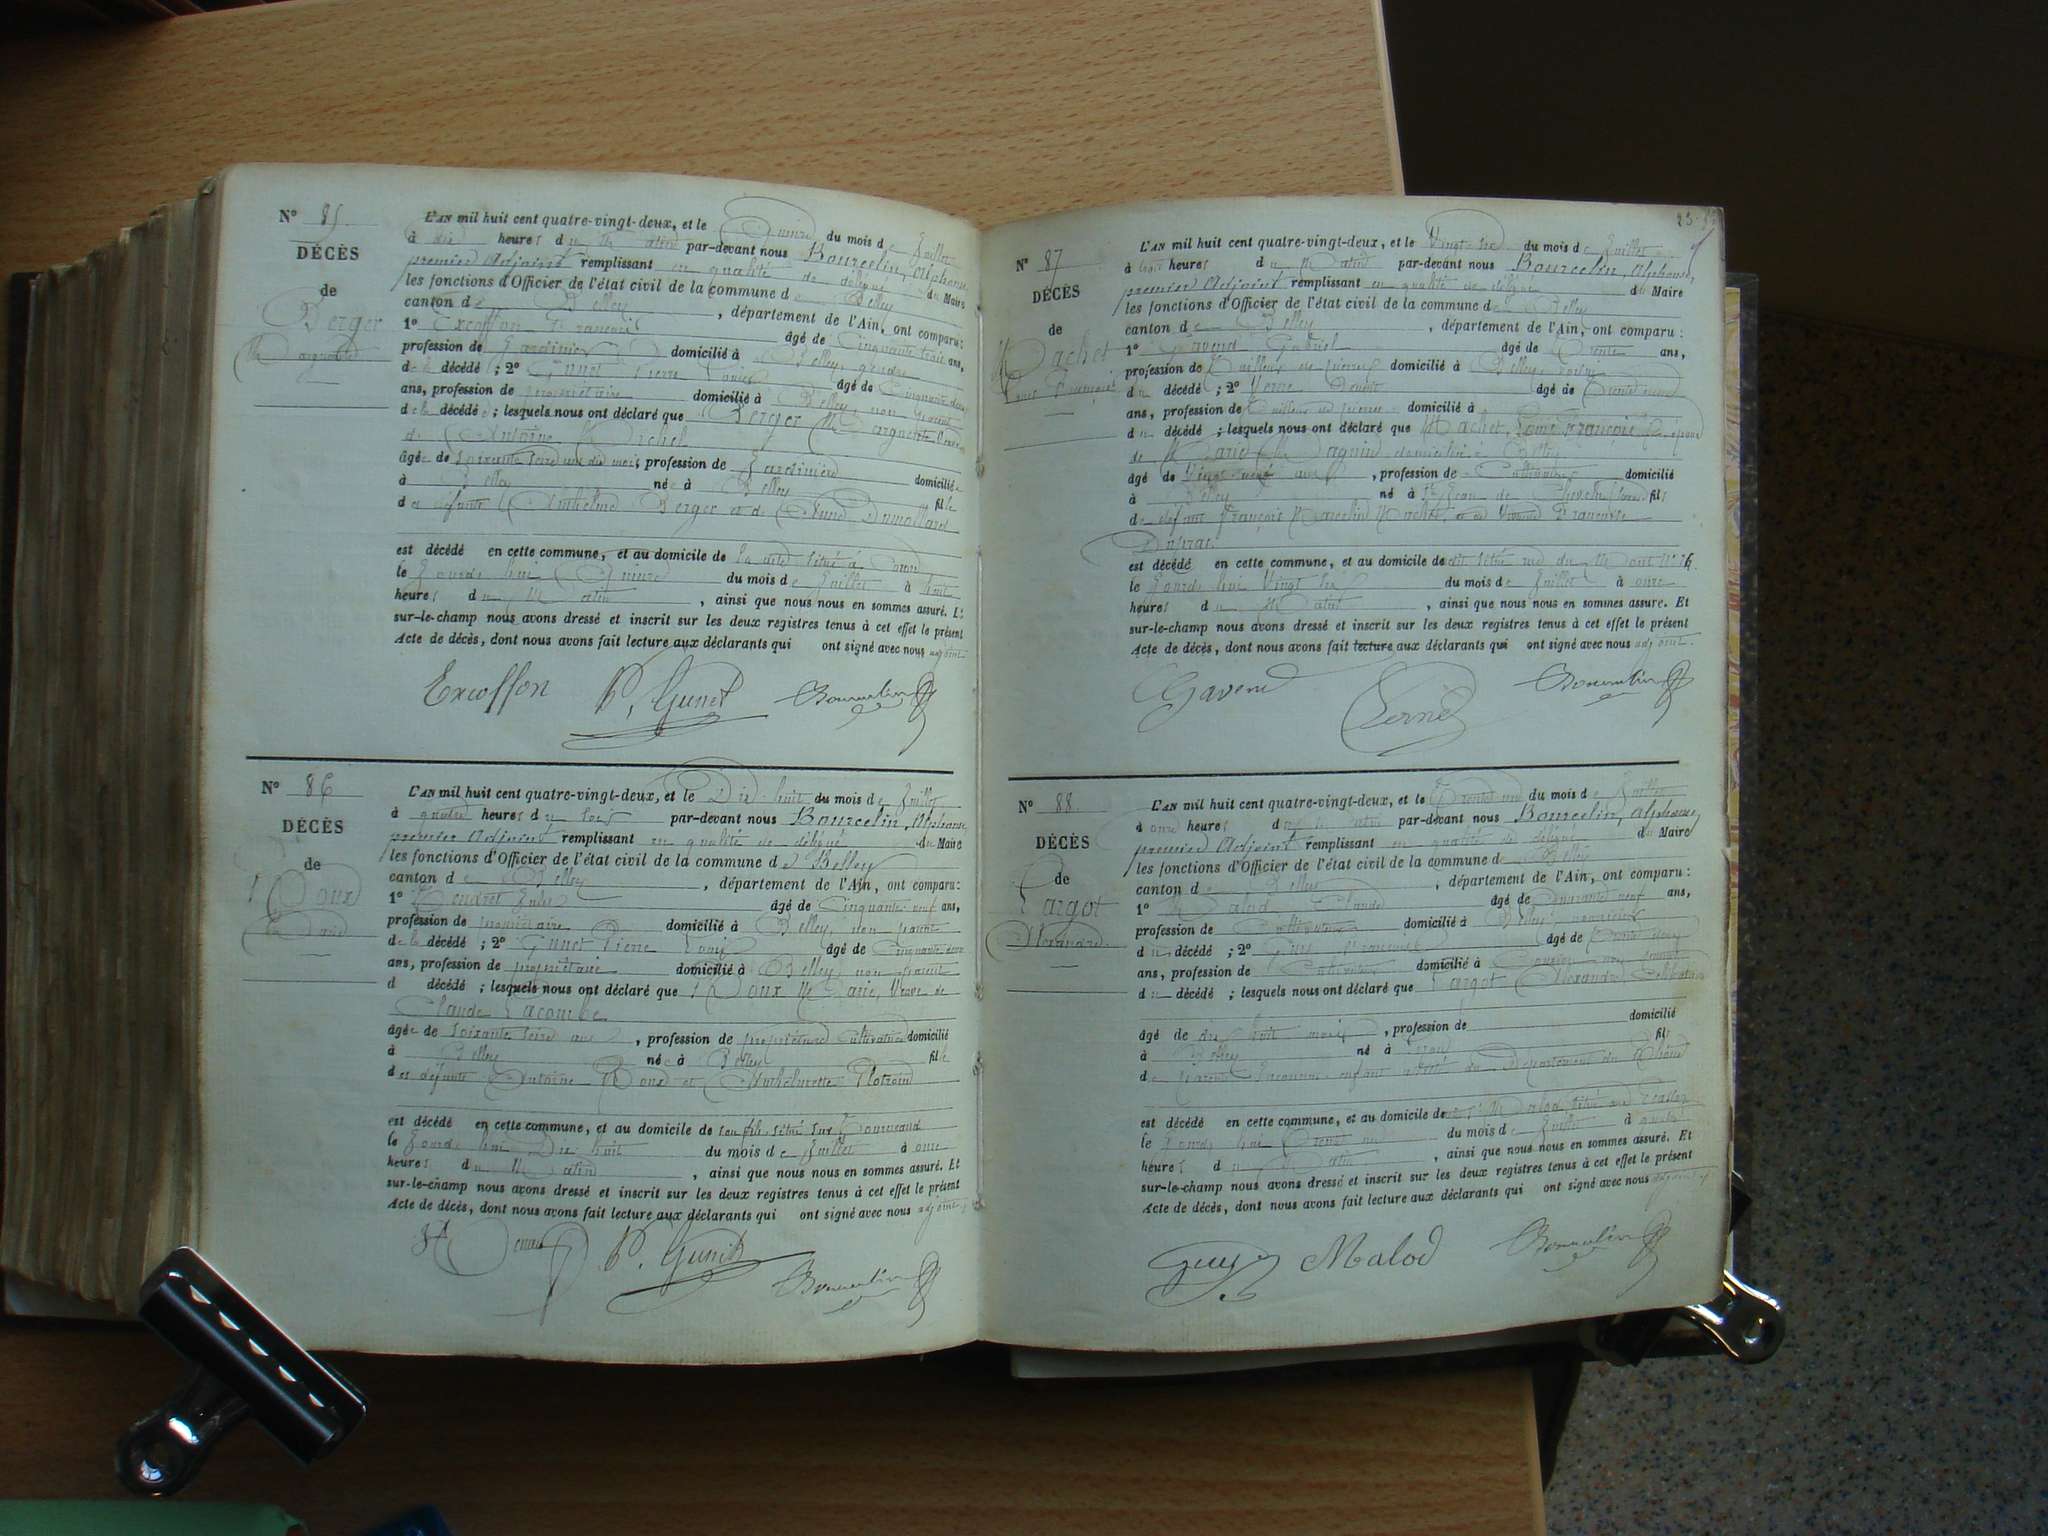 N° 85
DÉCÈS
de
Berger
Marguerite
L'AN mil huit cent quatre-vingt-deux, et le Quinze du mois de Juillet
à dix heures du Matin par-devant nous Bourcelin, Alphonse,
premier Adjoint remplissant en qualité de délégué du Maire
les fonctions d'Officier de l'état civil de la commune de Belley
canton de Belley, département de l'Ain, ont comparu:
1° Excoffon François âgé de Cinquante trois ans,
profession de Jardinier domicilié à Belley, gendre
de la décédée; 2° Gunet Pierre Louis âgé de Cinquante deux
ans, profession de propriétaire domicilié à Belley, non parent
de la décédée; lesquels nous ont déclaré que Berger Marguerite Veuve
de Antoine Michel
âgée de soixante seize ans dix mois, profession de Jardinière domiciliée
à Belley née à Belley fille
des défunts Anthelme Berger et de Dumollard
est décédé en cette commune, et au domicile de situé à
le Jourd'hui Quinze du mois de Juillet à huit
heures du Matin, ainsi que nous nous en sommes assuré. Et
sur-le-champ nous avons dressé et inscrit sur les deux registres tenus à cet effet le présent
Acte de décès, dont nous avons fait lecture aux déclarants qui ont signé avec nous adjoint.
Excoffon P. Gunet Bourcelin
N° 86
DÉCÈS
de
Roux
Marie
L'AN mil huit cent quatre-vingt-deux, et le Dix-huit du mois de Juillet
à quatre heures du soir par-devant nous Bourcelin, Alphonse,
premier Adjoint remplissant en qualité de délégué du Maire
les fonctions d'Officier de l'état civil de la commune de Belley
canton de Belley, département de l'Ain, ont comparu:
1° âgé de Cinquante neuf ans,
profession de propriétaire domicilié à Belley, non parent
de la décédé; 2° Gunet Pierre Louis âgé de Cinquante deux
ans, profession de propriétaire domicilié à Belley, non parent
d décédé; lesquels nous ont déclaré que Roux Marie, Veuve de
Claude Lacombe
âgée de soixante seize ans, profession de propriétaire Cultivatrice domicilié
à Belley née à Belley fille
des défunts Antoine Roux et Anthelmette
est décédé en cette commune, et au domicile de son fils situé sur
le Jourd'hui Dix huit du mois de Juillet à onze
heures du Matin, ainsi que nous nous en sommes assuré. Et
sur-le-champ nous avons dressé et inscrit sur les deux registres tenus à cet effet le présent
Acte de décès, dont nous avons fait lecture aux déclarants qui ont signé avec nous adjoint.
P. Gunet Bourcelin
N° 87
DÉCÈS
de
Machet
Louis François
L'AN mil huit cent quatre-vingt-deux, et le Vingt six du mois de Juillet
à trois heures du Matin par-devant nous Bourcelin, Alphonse,
premier Adjoint remplissant en qualité de délégué du Maire
les fonctions d'Officier de l'état civil de la commune de Belley
canton de Belley, département de l'Ain, ont comparu:
1° Gavend Gabriel âgé de Trente ans,
profession de Tailleur de pierres domicilié à Belley, voisin
du décédé; 2° Verne âgé de Trente
ans, profession de Tailleur de pierres domicilié à
du décédé; lesquels nous ont déclaré que Machet, Louis François, époux
de Marie domicilié à Belley
âgé de Vingt neuf ans, profession de Cultivateur domicilié
à Belley né à St Jean de fils
de défunt François Marcelin Machet, et de Françoise
est décédé en cette commune, et au domicile de situé rue du
le Jourd'hui Vingt six du mois de Juillet à onze
heures du Matin, ainsi que nous nous en sommes assuré. Et
sur-le-champ nous avons dressé et inscrit sur les deux registres tenus à cet effet le présent
Acte de décès, dont nous avons fait lecture aux déclarants qui ont signé avec nous adjoint.
Gavend Verne Bourcelin
N° 88
DÉCÈS
de
Largot
Alexandre
L'AN mil huit cent quatre-vingt-deux, et le Trente un du mois de Juillet
à onze heures du Matin par-devant nous Bourcelin, Alphonse,
premier Adjoint remplissant en qualité de délégué du Maire
les fonctions d'Officier de l'état civil de la commune de Belley
canton de Belley, département de l'Ain, ont comparu:
1° Malod Claude âgé de Quarante neuf ans,
profession de Cultivateur domicilié à Belley, nourricier
du décédé; 2° Guy François âgé de Trente deux
ans, profession de Cultivateur domicilié à
du décédé; lesquels nous ont déclaré que Largot Alexandre Célibataire
âgé de dix huit mois, profession de domicilié
à Belley né à fils
de enfant assisté du Département du Rhône
est décédé en cette commune, et au domicile de Malod, situé
le Jourd'hui Trente un du mois de Juillet à quatre
heures du Matin, ainsi que nous nous en sommes assuré. Et
sur-le-champ nous avons dressé et inscrit sur les deux registres tenus à cet effet le présent
Acte de décès, dont nous avons fait lecture aux déclarants qui ont signé avec nous adjoint.
Guy Malod Bourcelin